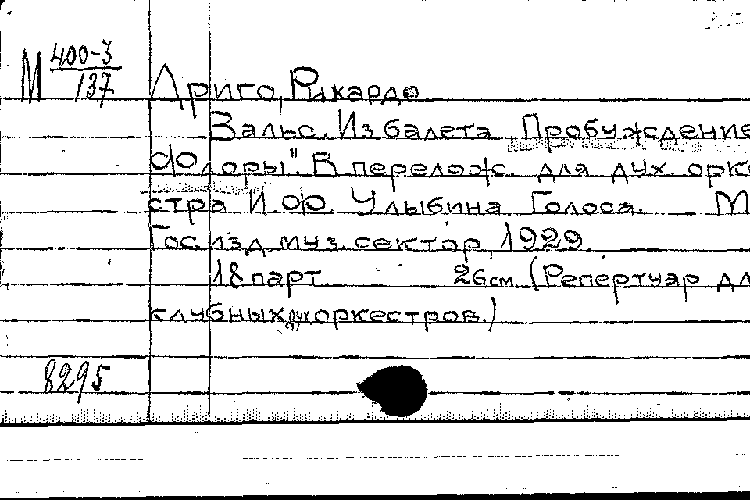 М 400-3
137
Дриго, Рикардо
Вальс. Из балета Пробуждение
Флоры". В перелож. для дух. орке
стра И.Ф. Улыбина Голоса. — М
Гос изд муз. сектор, 1929.
18 парт 26 см. (Репертуар дл
клубных дух оркестров.)
8295